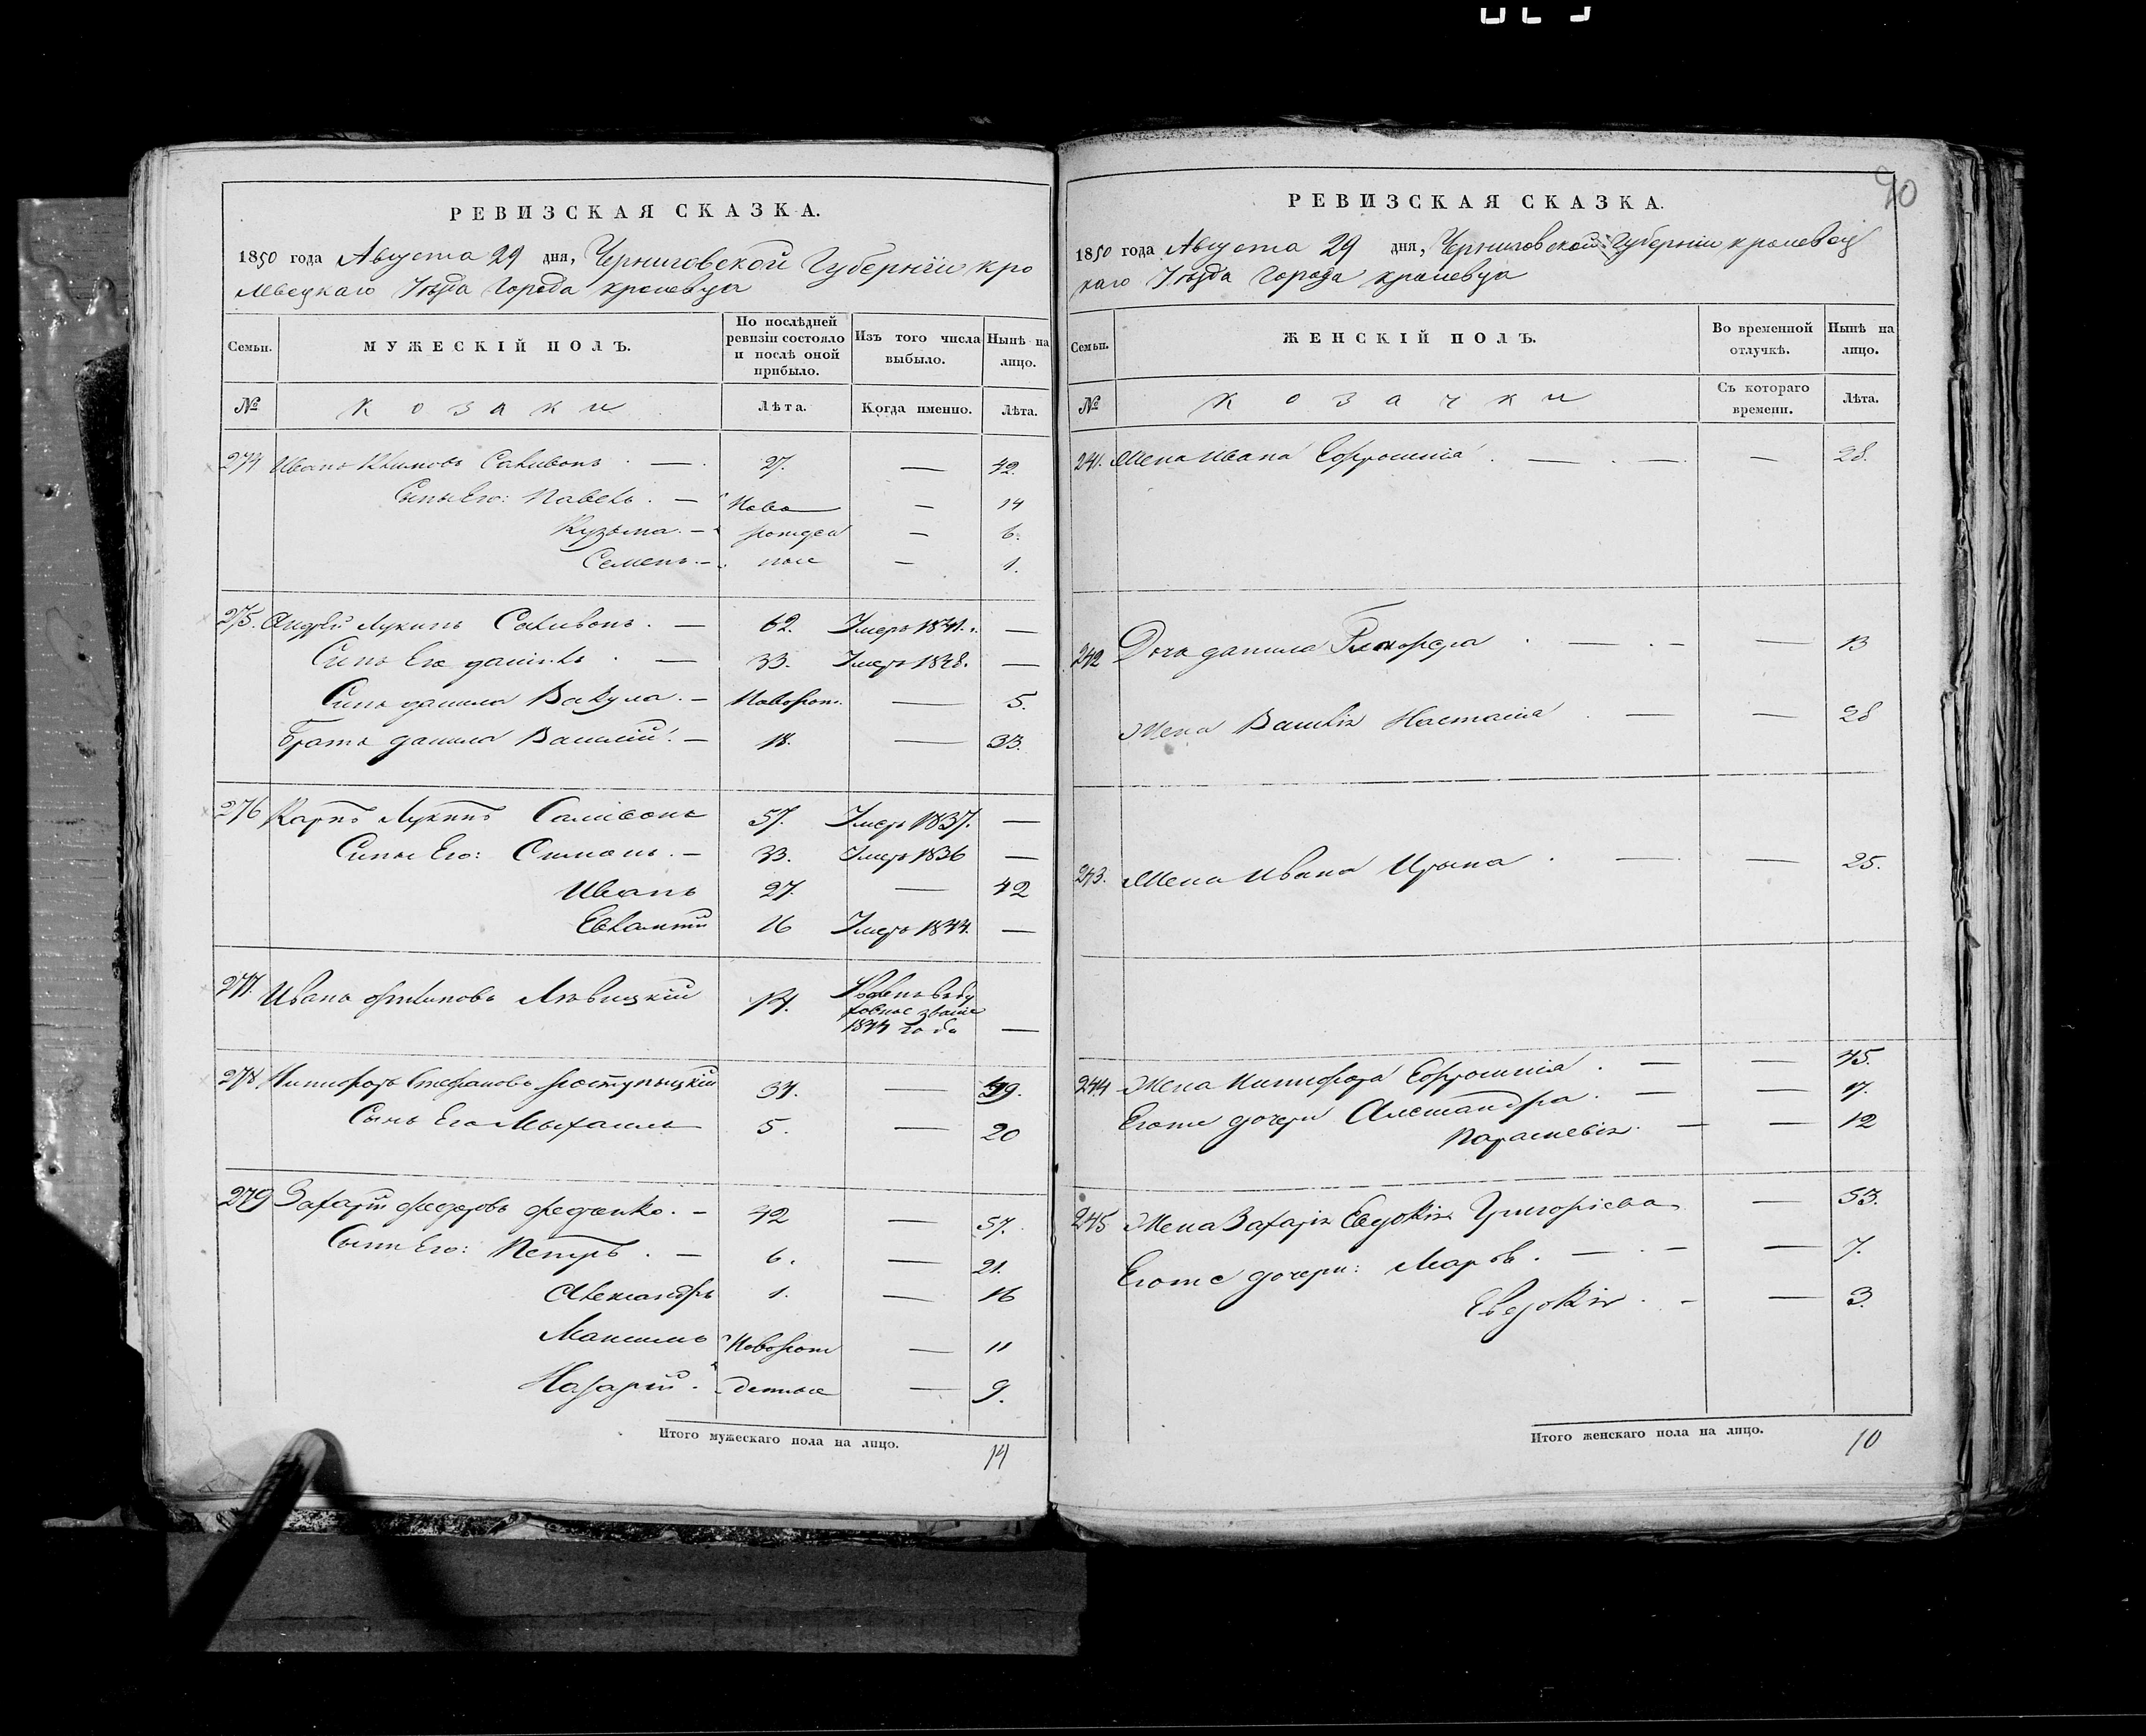 90
РЕВИЗСКАЯ СКАЗКА.
1850 года Августа 29 дня, Черниговской Губерніи, кро
левецкаго Уѣзда Города кролевца
Семьи. МУЖЕСКІЙ ПОЛЪ. По послѣдней ревизіи состояло и послѣ оной прибыло. Изъ того числа выбыло. Нынѣ на лицо.
№ козаки Лѣта. Когда именно. Лѣта.
274 Иванъ Климовъ Саливонъ. — 27. — 42.
Сыны Его: Павелъ. — Ново — 14
Кузьма. — рожден — 6.
Семенъ. — ные — 1.
275. Андрей Лукинъ Саливонъ. — 62. Умеръ 1841. —
Сынъ Его данило. — 33. Умеръ 1848. —
Сынъ данила Вакула. — Новорож. — 5.
Братъ данила Василій. — 18. — 33.
276 Карпъ Лукинъ Саливонъ 57. Умеръ 1837. —
Сыны Его: Симонъ. — 33. Умеръ 1836 —
Иванъ 27. — 42
Евлампій 16 Умеръ 1844. —
277. Иванъ Левицкій 14. ховное званіе 1844 года —
278. Никифоръ Стефановъ 34. — 49.
Сынъ Его Михаилъ 5. — 20
279 Захарій федоровъ федченко. — 42 — 57.
Сыны Его: Петръ. — 6. — 21.
Александръ 1. — 16
Максимъ Новорож — 11
Назарій. денные — 9.
Итого мужескаго пола на лицо. 14
РЕВИЗСКАЯ СКАЗКА.
1850 года Августа 29 дня, Черниговской Губерніи, кролевец
каго Уѣзда Города кролевца
Семьи. ЖЕНСКІЙ ПОЛЪ. Во временной отлучкѣ. Нынѣ на лицо.
№ козачки Съ котораго времени. Лѣта.
241. Жена Ивана Ефросинія. — . — — 28.
242 Дочь данила — . — — 13
Жена Василія Настасія. — — 28
243. Жена Ивана Ирына. — — 25.
244 Жена Никифора Ефросинія. — — 45.
Егоже дочери Александра. — — 17.
Параскевія. — — 12
245 Жена Захарія Евдокія Григоріева — 53.
Егоже дочери: Марфа. — . — — 7.
Евдокія. — — 3.
Итого женскаго пола на лицо. 10